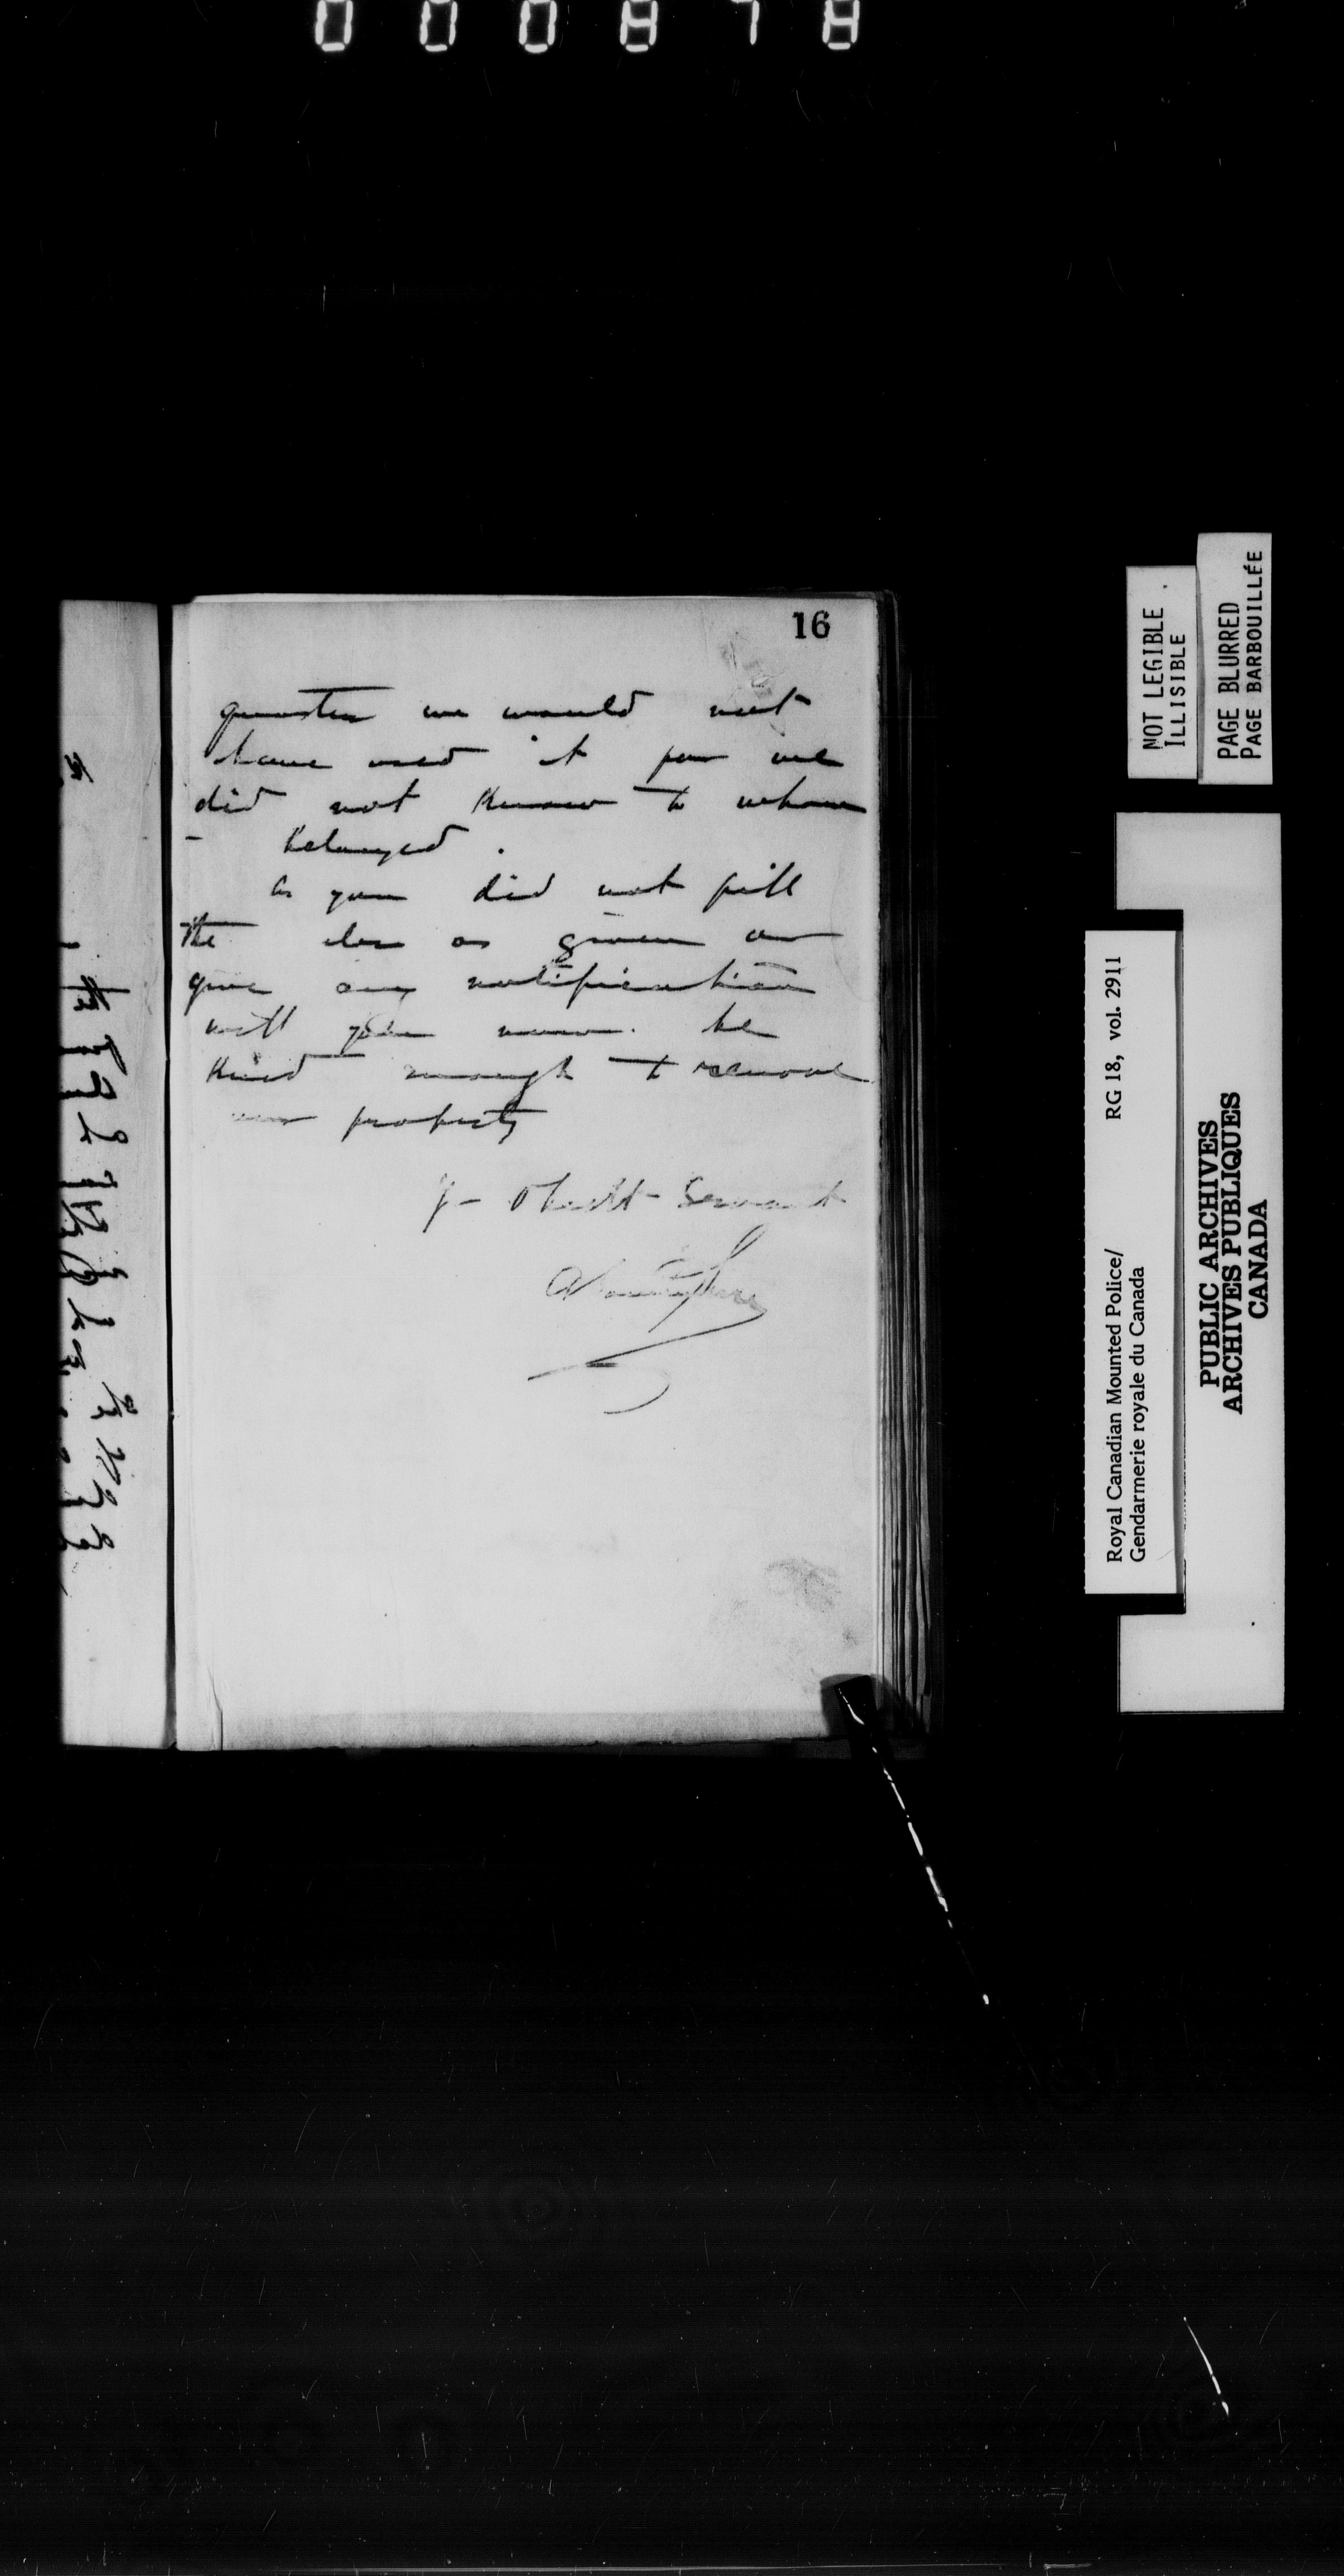 000878
16
quarter we would not
have used it for we
did not know to whom
belonged.
As you did not fill
the as given or
give any notification
will you now be
kind enough to remove
property
Y- Obedt Servant
NOT LEGIBLE
ILLISIBLE
PAGE BLURRED
PAGE BARBOUILLÉE
RG 18, vol. 2911
Royal Canadian Mounted Police/
Gendarmerie royale du Canada
PUBLIC ARCHIVES
ARCHIVES PUBLIQUES
CANADA